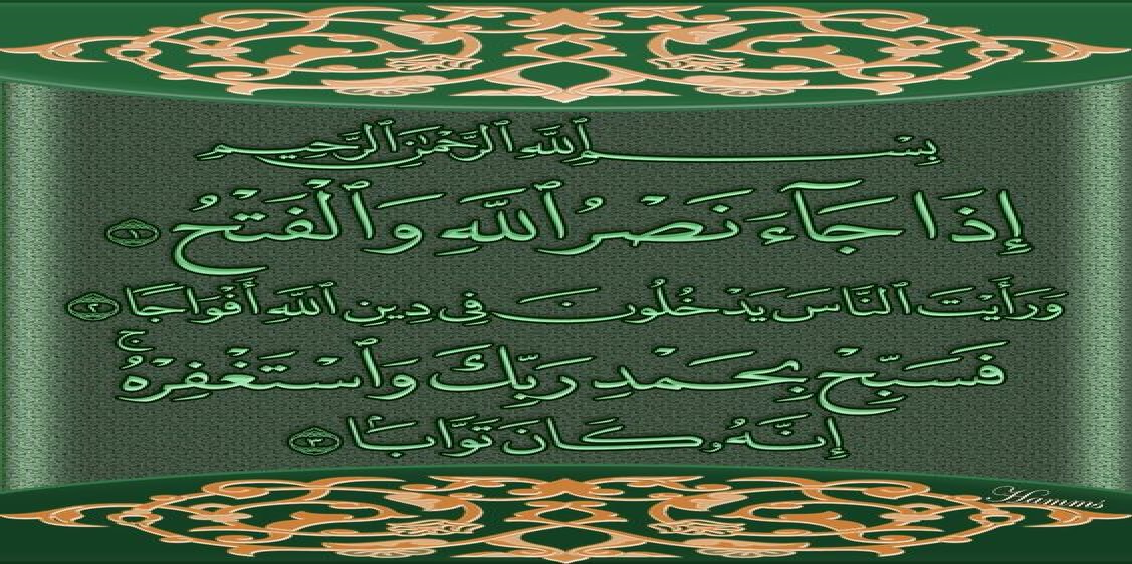 بِسْمِ ٱللَّهِ ٱلرَّحْمَٰنِ ٱلرَّحِيمِ
إِذَا جَآءَ نَصْرُ ٱللَّهِ وَٱلْفَتْحُ ١
وَرَأَيْتَ ٱلنَّاسَ يَدْخُلُونَ فِى دِينِ ٱللَّهِ أَفْوَاجًا ٢
فَسَبِّحْ بِحَمْدِ رَبِّكَ وَٱسْتَغْفِرْهُ ۚ
إِنَّهُۥ كَانَ تَوَّابَۢا ٣
Hamms